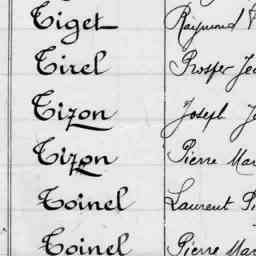 Tiget Raymond
Tirel Prosper Je
Tizon Joseph Je
Tizon Pierre Mar
Toinel Laurent Pi
Toinel Pierre Mar